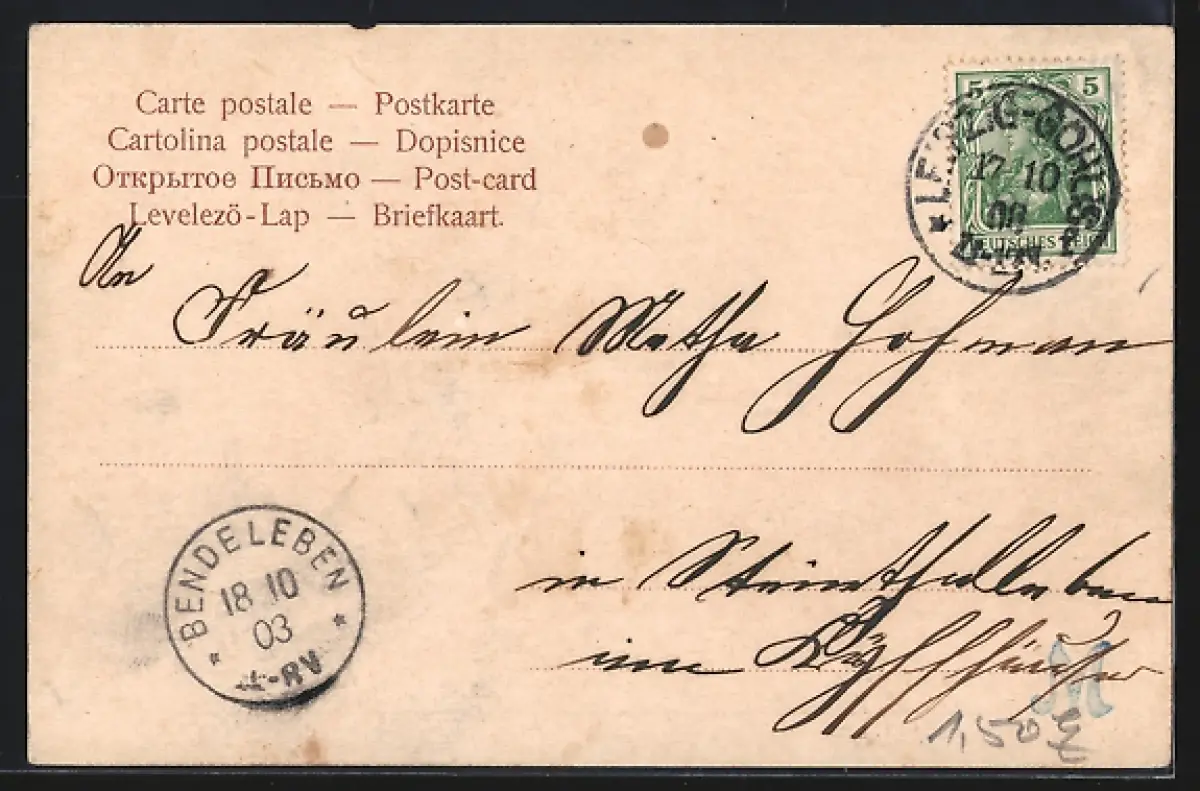 Carte postale — Postkarte
Cartolina postale — Dopisnice
Открытое Письмо — Post-card
Levelezö-Lap — Briefkaart.
5 5
DEUTSCHES REICH
LEIPZIG-GOHLIS
17 10
An
Fräulein Metha Hohman
in Steinthalleben
im Kÿffhäuser
BENDELEBEN
18 10
03
M
1,50